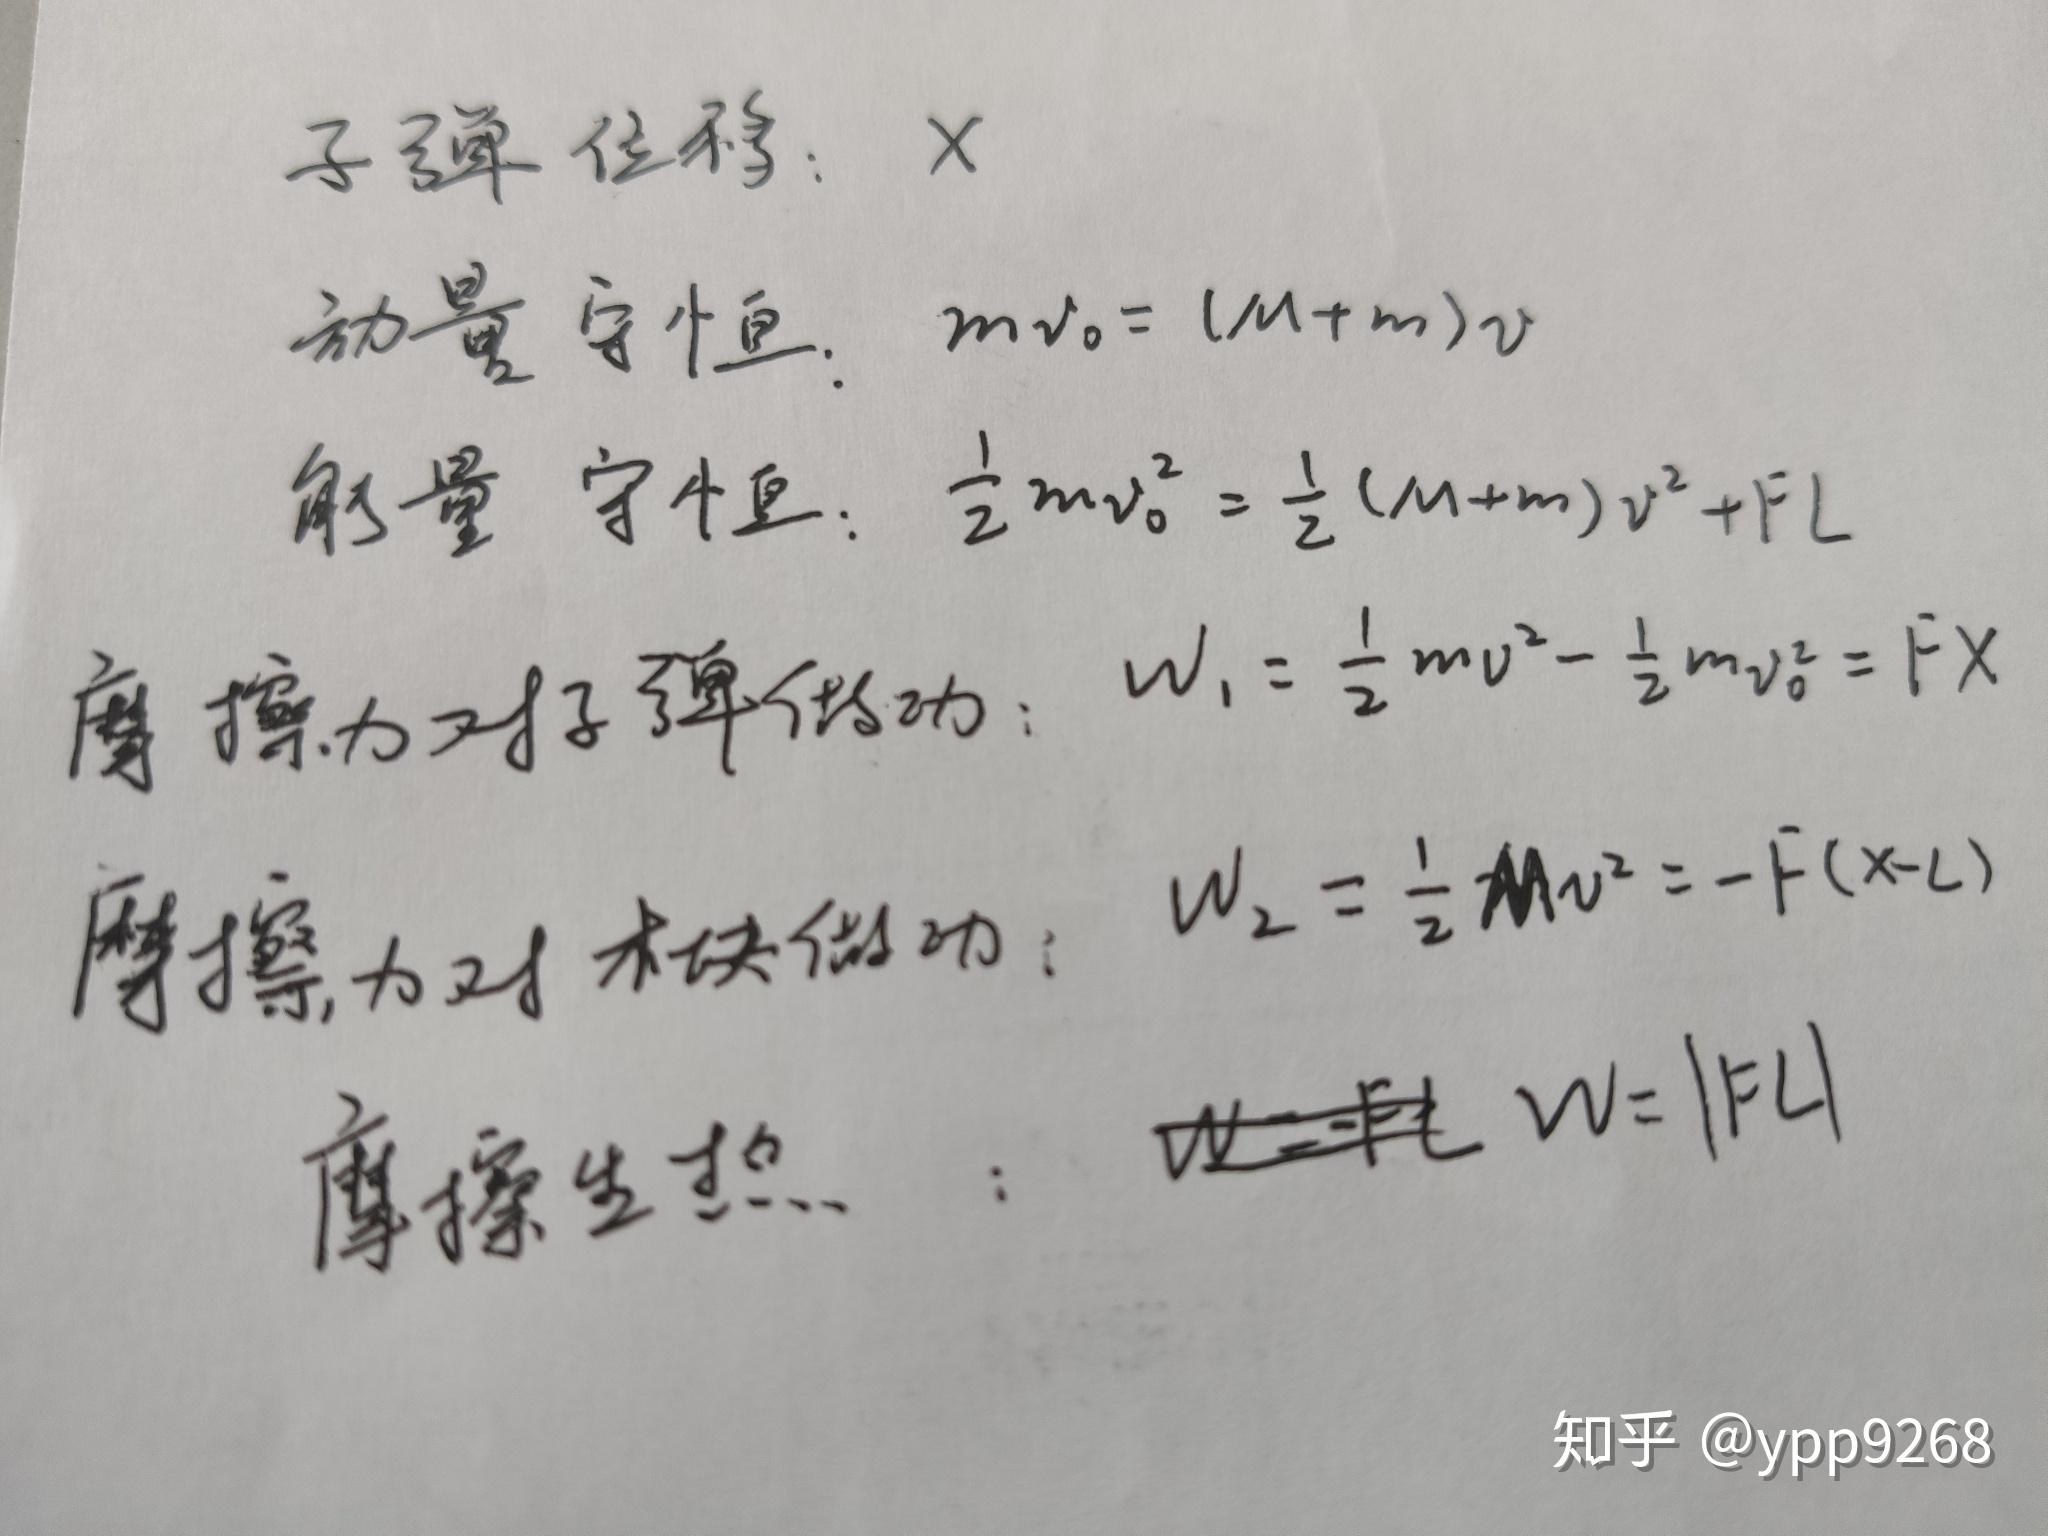 子弹位移: X
动量守恒: mv₀ = (M+m)v
能量守恒: ½mv₀² = ½(M+m)v² + FL
摩擦力对子弹做功: W₁ = ½mv² - ½mv₀² = FX
摩擦力对木块做功: W₂ = ½Mv² = -F(X-L)
摩擦生热 : W = -FL W = |FL|
知乎 @ypp9268